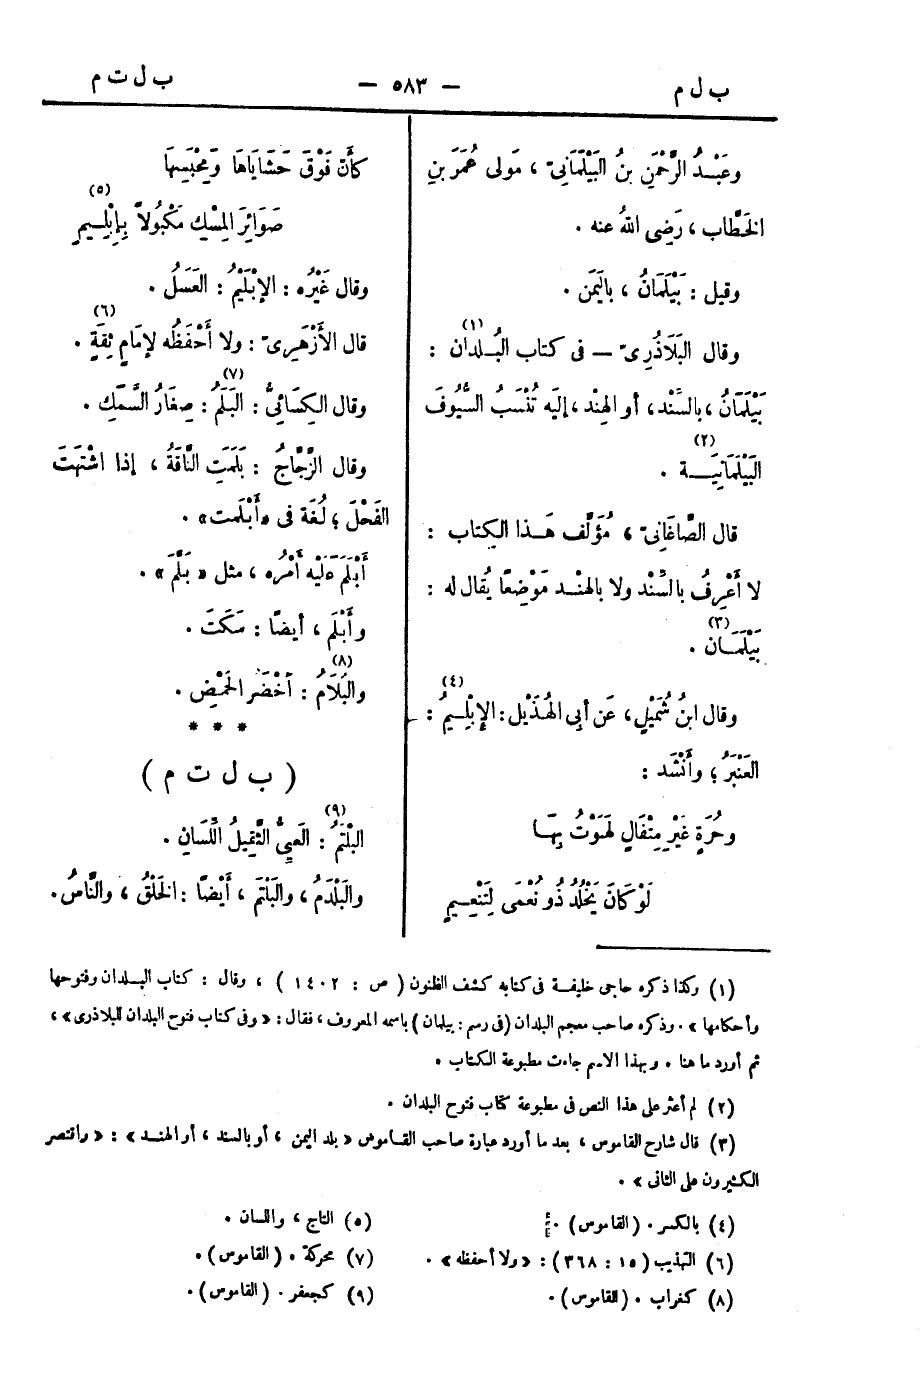 ب ل م
— ٥٨٣ —
ب ل ت م
وعَبْدُ الرَّحْمَنِ بنُ البَيْلَمَانِيّ ، مَولى عُمَرَ بنِ
الخَطَّاب ، رَضِى اللهُ عنه .
وقيل : بَيْلَمَانُ ، باليَمَن .
وقال البَلاَذُرِىّ — فى كتاب البُلدان (١) :
بَيْلَمَانُ ، بالسِّند ، أو الهِند ، إليَه تُنْسَبُ السُّيُوفُ
البَيْلَمَانِيَّـة (٢) .
قال الصَّاغَانِىّ ، مُؤَلِّف هَـذا الكِتاب :
لا أَعْرِفُ بالسِّنْد ولا بالهنْـد مَوْضِعًا يُقال له :
بَيْلَمَـان (٣) .
وقال ابنُ شُمَيْلٍ ، عَن أبِى الهُذَيْل : الإبْلِيمُ (٤) :
العَنْبَرُ ؛ وأَنْشَد :
وحُرَةٍ غَيْرِ مِتْفَالٍ لَهَوْتُ بِهَا
لَوْ كَانَ يَخْلُدُ ذُو نُعْمَى لِتَنْعِيمِ
كأَنّ فَوْقَ حَشَايَاهَا ومِحْبَسِهَا
صَوَائِرَ المِسْكِ مَكْبُولاً بِإبْلِيمِ (٥)
وقال غَيْرُه : الإبْلَيْمُ : العَسَلُ .
قال الأَزْهَرِىّ : ولا أَحْفَظُه لإمَامٍ ثِقَةٍ (٦) .
وقال الكِسَائِىُّ : البَلَمُ (٧) : صِغَارُ السَّمَكِ .
وقال الزَّجَّاجُ : بَلَمَتِ النَّاقَةُ ، إذا اشْتَهَتَ
الفَحْلَ ؛ لُغَة فى «أَبْلَمت» .
أَبْلَمَ عَلَيْه أَمْرُه ، مثل « بَلَّمَ » .
وأَبْلَم ، أيضًا : سَكَتَ .
والبُلَامُ (٨) : أخْضَر الحَمْض .
* * *
( ب ل ت م )
البَلْتَمُ (٩) : العَيِىُّ الثَّقِيلُ اللِّسَانِ .
والبَلْدَمُ ، والبَلْتَم ، أيْضًا : الخَلْقُ ، والنَّاسُ .
(١) وكذا ذكره حاجى خليفة فى كتابه كشف الظنون ( ص : ١٤٠٢ ) ، وقال : كتاب البلدان وفتوحها
وأحكامها » . وذكره صاحب معجم البلدان (فى رسم : بيلمان) باسمه المعروف ، فقال : « وفى كتاب فتوح البلدان للبلاذرى » ،
ثم أورد ما هنا . وبهذا الاسم جاءت مطبوعة الكتاب .
(٢) لم أعثر على هذا النص فى مطبوعة كتاب فتوح البلدان .
(٣) قال شارح القاموس ، بعد ما أورد عبارة صاحب القاموس « بلد اليمن ، أو بالسند ، أو الهند » : « واقتصر
الكثيرون على الثانى » .
(٤) بالكسر . (القاموس) .
(٥) التاج ، واللسان .
(٦) التهذيب (١٥ : ٣٦٨) : « ولا أحفظه » .
(٧) محركة . (القاموس) .
(٨) كغراب . (القاموس) .
(٩) كجعفر . (القاموس) .